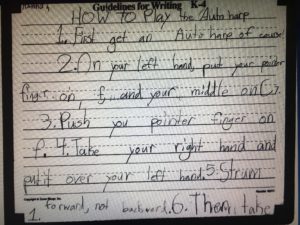 Guidelines for Writing K-4
HOW To PLay the Auto harp
1. First get an Auto harp of cause!
2. On your left hand, put your pointer
finger on, f... and your middle on C7.
3. Push you pointer finger on
f. 4. Take your right hand and
put it over your left hand. 5. Strum
1. forward, not backward. 6. Then, take